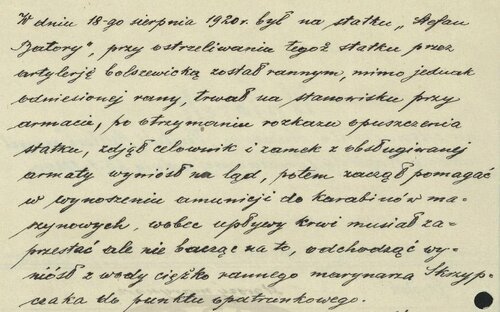 W dniu 18-go sierpnia 1920r. był na statku „Stefan
Batory", przy ostrzeliwaniu tegoż statku przez
artylerję bolszewicką został rannym, mimo jednak
odniesionej rany, trwał na stanowisku przy
armacie, po otrzymaniu rozkazu opuszczenia
statku, zdjął celownik i zamek z obsługiwanej
armaty wyniósł na ląd, potem zaczął pomagać
w wynoszeniu amunicji do karabinów ma-
szynowych, wobec upływy krwi musiał za-
przestać ale nie bacząc na to, odchodząc wy-
niósł z wody ciężko rannego marynarza Skrzyp-
czaka do punktu opatrunkowego.